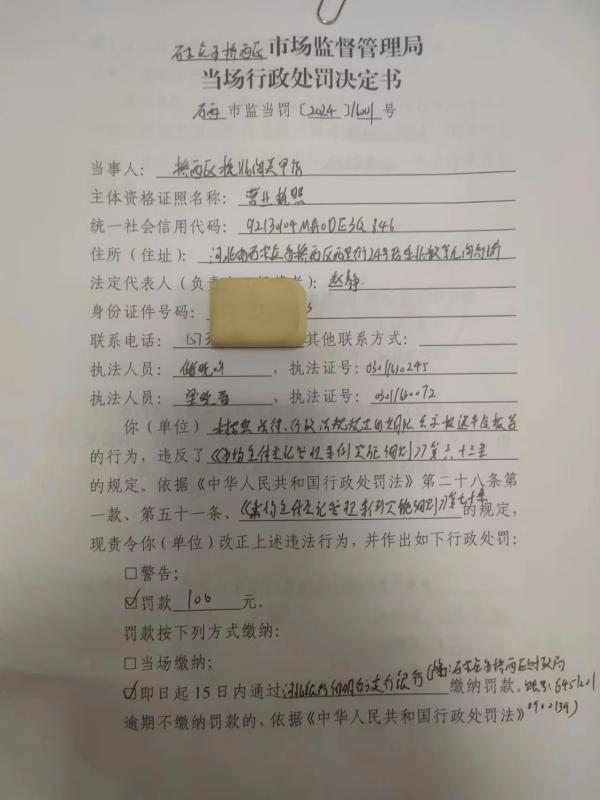 石家庄市桥西区市场监督管理局
当场行政处罚决定书
石西市监当罚〔2024〕1601号
当事人： 桥西区
主体资格证照名称： 营业执照
统一社会信用代码： 92130104MA0DE3Q846
住所（住址）： 河北省石家庄市桥西区
法定代表人（负责 ）： 赵静
身份证件号码：
联系电话： 157 其他联系方式：
执法人员： ，执法证号：03011610245
执法人员： ，执法证号：03011610072
你（单位） 未按照法律、行政法规规定的期限公示报送年度报告
的行为，违反了《市场主体登记管理条例实施细则》第六十三条
的规定。依据《中华人民共和国行政处罚法》第二十八条第
一款、第五十一条、《市场主体登记管理条例实施细则》第七十条的规定，
现责令你（单位）改正上述违法行为，并作出如下行政处罚：
□警告；
☑罚款 100 元。
罚款按下列方式缴纳：
□当场缴纳；
☑即日起15日内通过河北银行 支行银行（ ：石家庄市桥西区财政局 账号：6451201
09021391）缴纳罚款。
逾期不缴纳罚款的，依据《中华人民共和国行政处罚法》